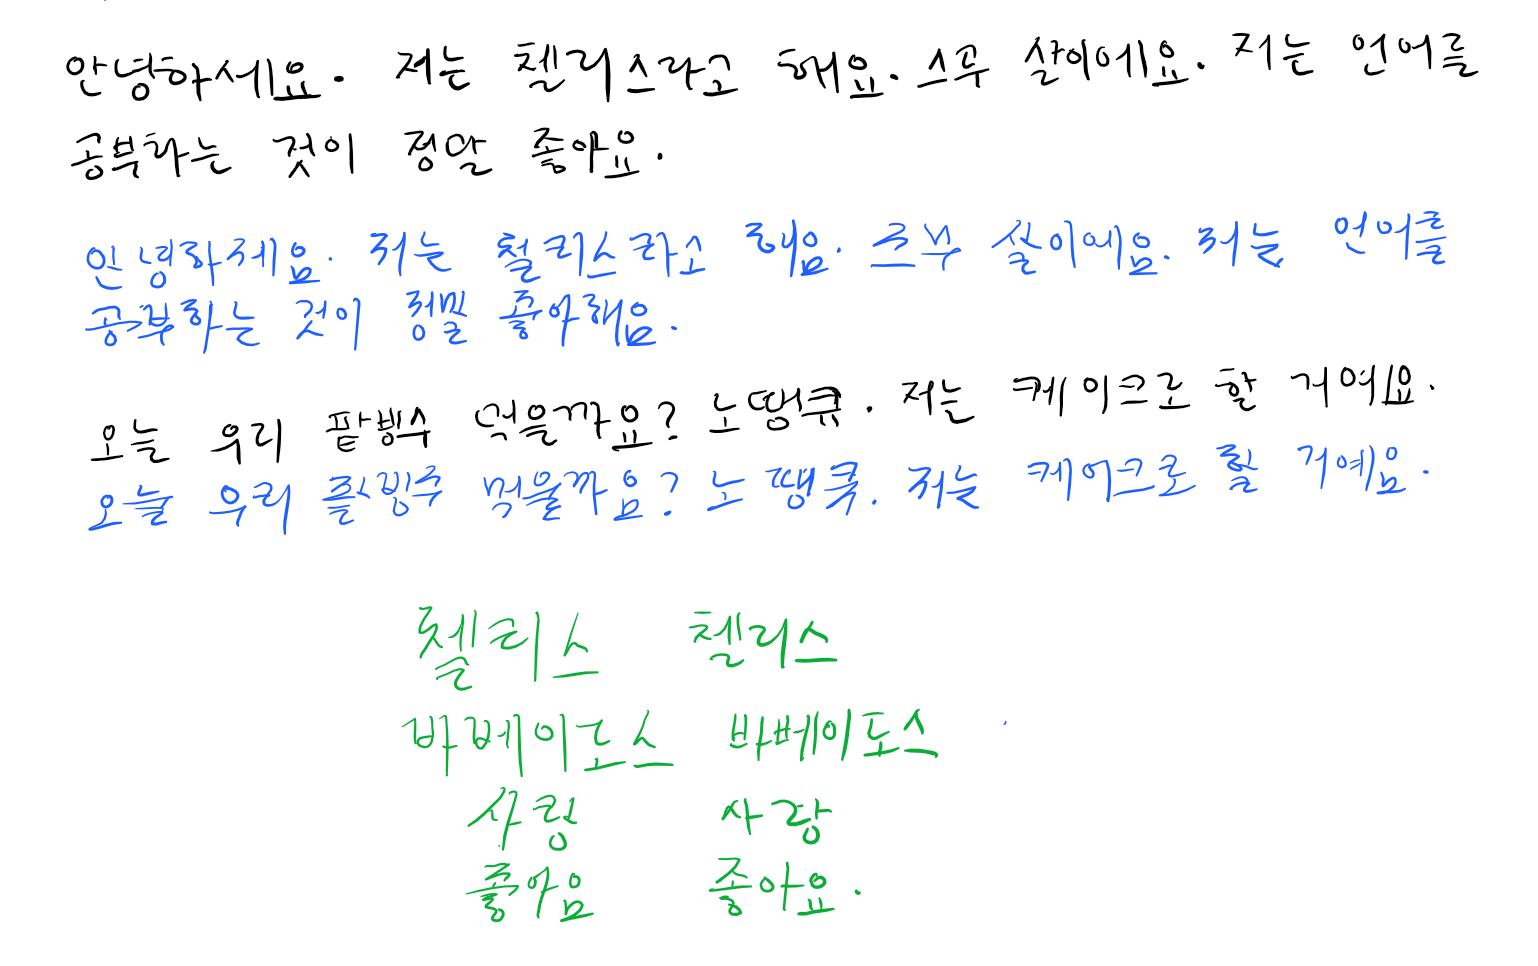 안녕하세요. 저는 첼리스라고 해요. 스무 살이에요. 저는 언어를
공부하는 것이 정말 좋아요.
안녕하세요. 저는 첼리스라고 해요. 스무 살이에요. 저는 언어를
공부하는 것이 정말 좋아해요.
오늘 우리 팥빙수 먹을까요? 노땡큐. 저는 케이크로 할 거예요.
오늘 우리 팥빙수 먹을까요? 노땡큐. 저는 케이크로 할 거예요.
첼리스 첼리스
바베이도스 바베이도스
사랑 사랑
좋아요 좋아요.